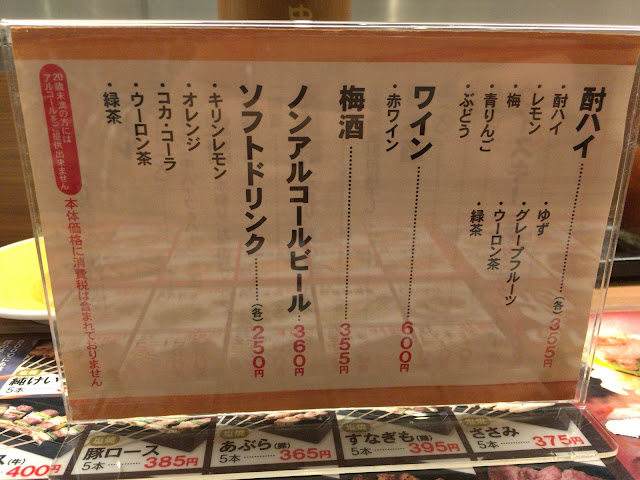 酎ハイ…………(各)355円
・酎ハイ ・ゆず
・レモン ・グレープフルーツ
・梅 ・ウーロン茶
・青りんご ・緑茶
・ぶどう
ワイン…………600円
・赤ワイン
梅酒…………355円
ノンアルコールビール…360円
ソフトドリンク……(各)250円
・キリンレモン
・オレンジ
・コカ・コーラ
・ウーロン茶
・緑茶
20歳未満の方には
アルコールをご提供出来ません
本体価格に消費税は含まれておりません
純けい
5本
ス(牛)
400円
塩焼
豚ロース
5本………385円
塩焼
あぶら(豚)
5本………365円
塩焼
すなぎも(鶏)
5本………395円
塩焼
ささみ
5本………375円